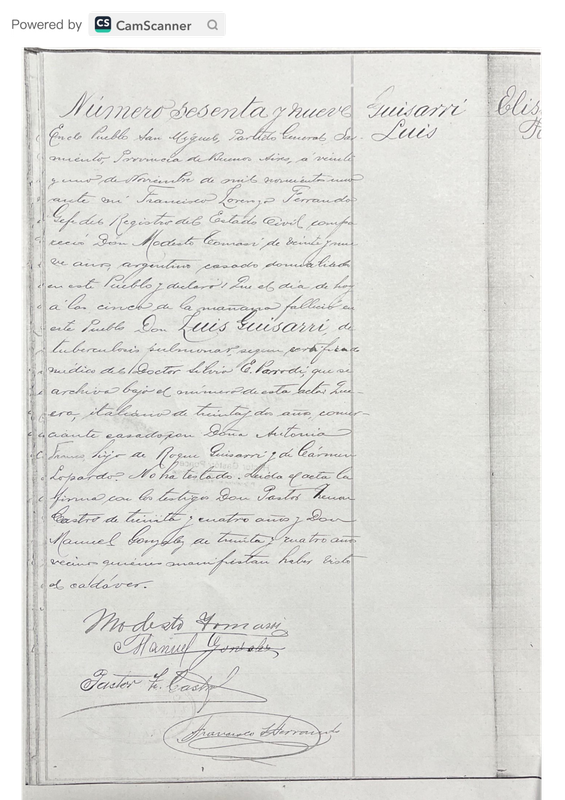 Powered by CS CamScanner
Número sesenta y nueve
Guisarri
Luis
En el Pueblo San Miguel, Partido General Sar-
miento, Provincia de Buenos Aires, a veinte
y uno de Noviembre de mil novecientos uno
ante mi Francisco Lorenzo Ferrando
Gefe del Registro del Estado Civil, compa
reció Don Modesto Tomassi de veinte y nue
ve años, argentino casado domiciliado
en este Pueblo y declaró: Que el dia de hoy
á las cinco de la mañana falleció en
este Pueblo Don Luis Guisarri, de
tuberculosis pulmonar, segun certificado
médico del Doctor Silvio E. Parodi, que se
archiva bajo el número de esta acta: Que
era, italiano de treinta y dos años, comer-
ciante casado con Doña Antonia
hijo de Roque Guisarri y de Cármen
Lopardo. No ha testado. Leida el acta la
firma con los testigos Don Pastor
Castro de treinta y cuatro años y Don
Manuel Gonzalez de treinta y cuatro años
vecinos quienes manifiestan haber visto
el cadáver.
Modesto Tomassi
Manuel Gonzalez
Pastor F. Castro
Francisco L Ferrando